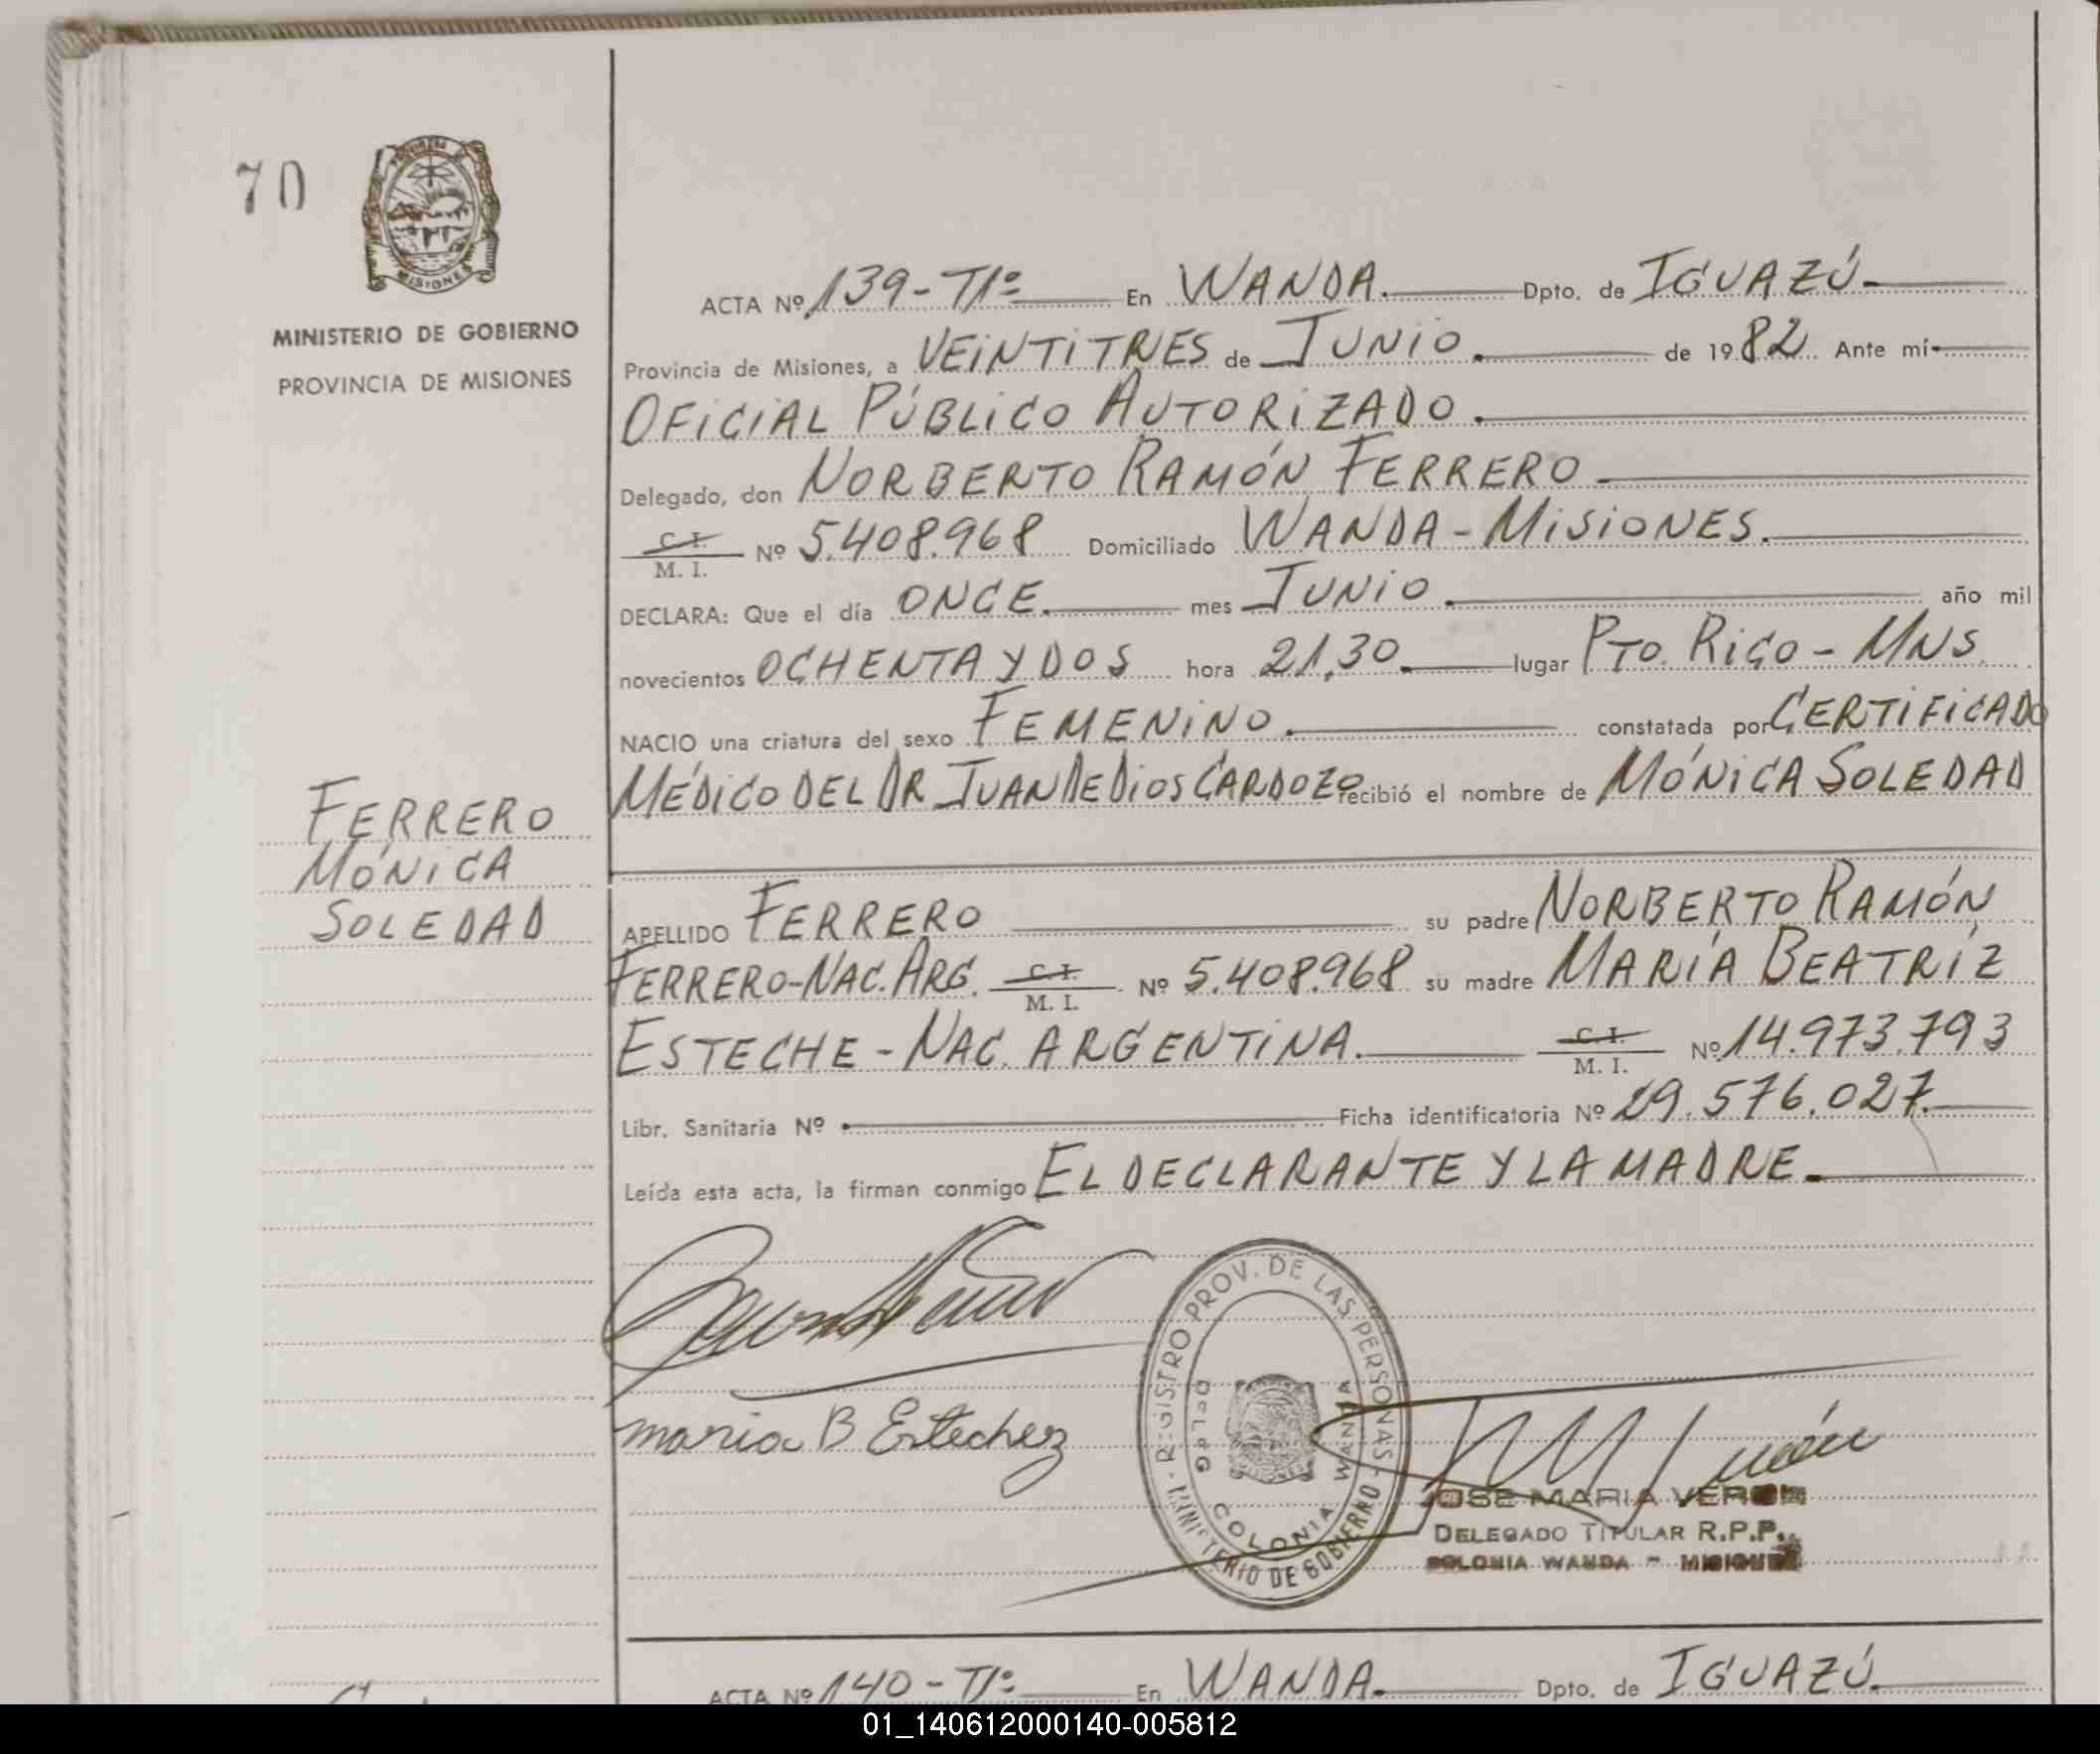 70
MISIONES
MINISTERIO DE GOBIERNO
PROVINCIA DE MISIONES
FERRERO
MÓNICA
SOLEDAD
ACTA Nº 139-Tlº En WANDA. Dpto. de IGUAZÚ
Provincia de Misiones, a VEINTITRES de JUNIO. de 1982 Ante mí
OFICIAL PÚBLICO AUTORIZADO.
Delegado, don NORBERTO RAMÓN FERRERO
C. I. / M. I. Nº 5.408.968 Domiciliado WANDA-MISIONES.
DECLARA: Que el día ONCE. mes JUNIO. año mil
novecientos OCHENTA Y DOS hora 21,30. lugar PTO. RICO-MNS
NACIO una criatura del sexo FEMENINO. constatada por CERTIFICADO
MÉDICO DEL DR JUAN DE DIOS CARDOZO recibió el nombre de MÓNICA SOLEDAD
APELLIDO FERRERO su padre NORBERTO RAMÓN
FERRERO-NAC. ARG. C. I. / M. I. Nº 5.408.968 su madre MARÍA BEATRÍZ
ESTECHE-NAC. ARGENTINA. C. I. / M. I. Nº 14.973.793
Libr. Sanitaria Nº Ficha identificatoria Nº 29.576.027.
Leída esta acta, la firman conmigo EL DECLARANTE Y LA MADRE.
maria B Estechez
REGISTRO PROV. DE LAS PERSONAS - MINISTERIO DE GOBIERNO
DELEG COLONIA WANDA
JOSE MARIA VERON
DELEGADO TITULAR R.P.P.
COLONIA WANDA - MISIONES
ACTA Nº 140-Tlº En WANDA. Dpto. de IGUAZÚ.
01_140612000140-005812